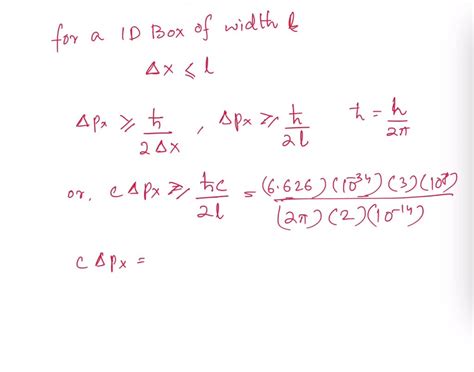 for a 1D Box of width l
Δx ≤ l
Δpx ≥ ħ/2Δx , Δpx ≥ ħ/2l ħ = h/2π
or, cΔpx ≥ ħc/2l = (6.626)(10^-34)(3)(10^8)/(2π)(2)(10^-14)
cΔpx =